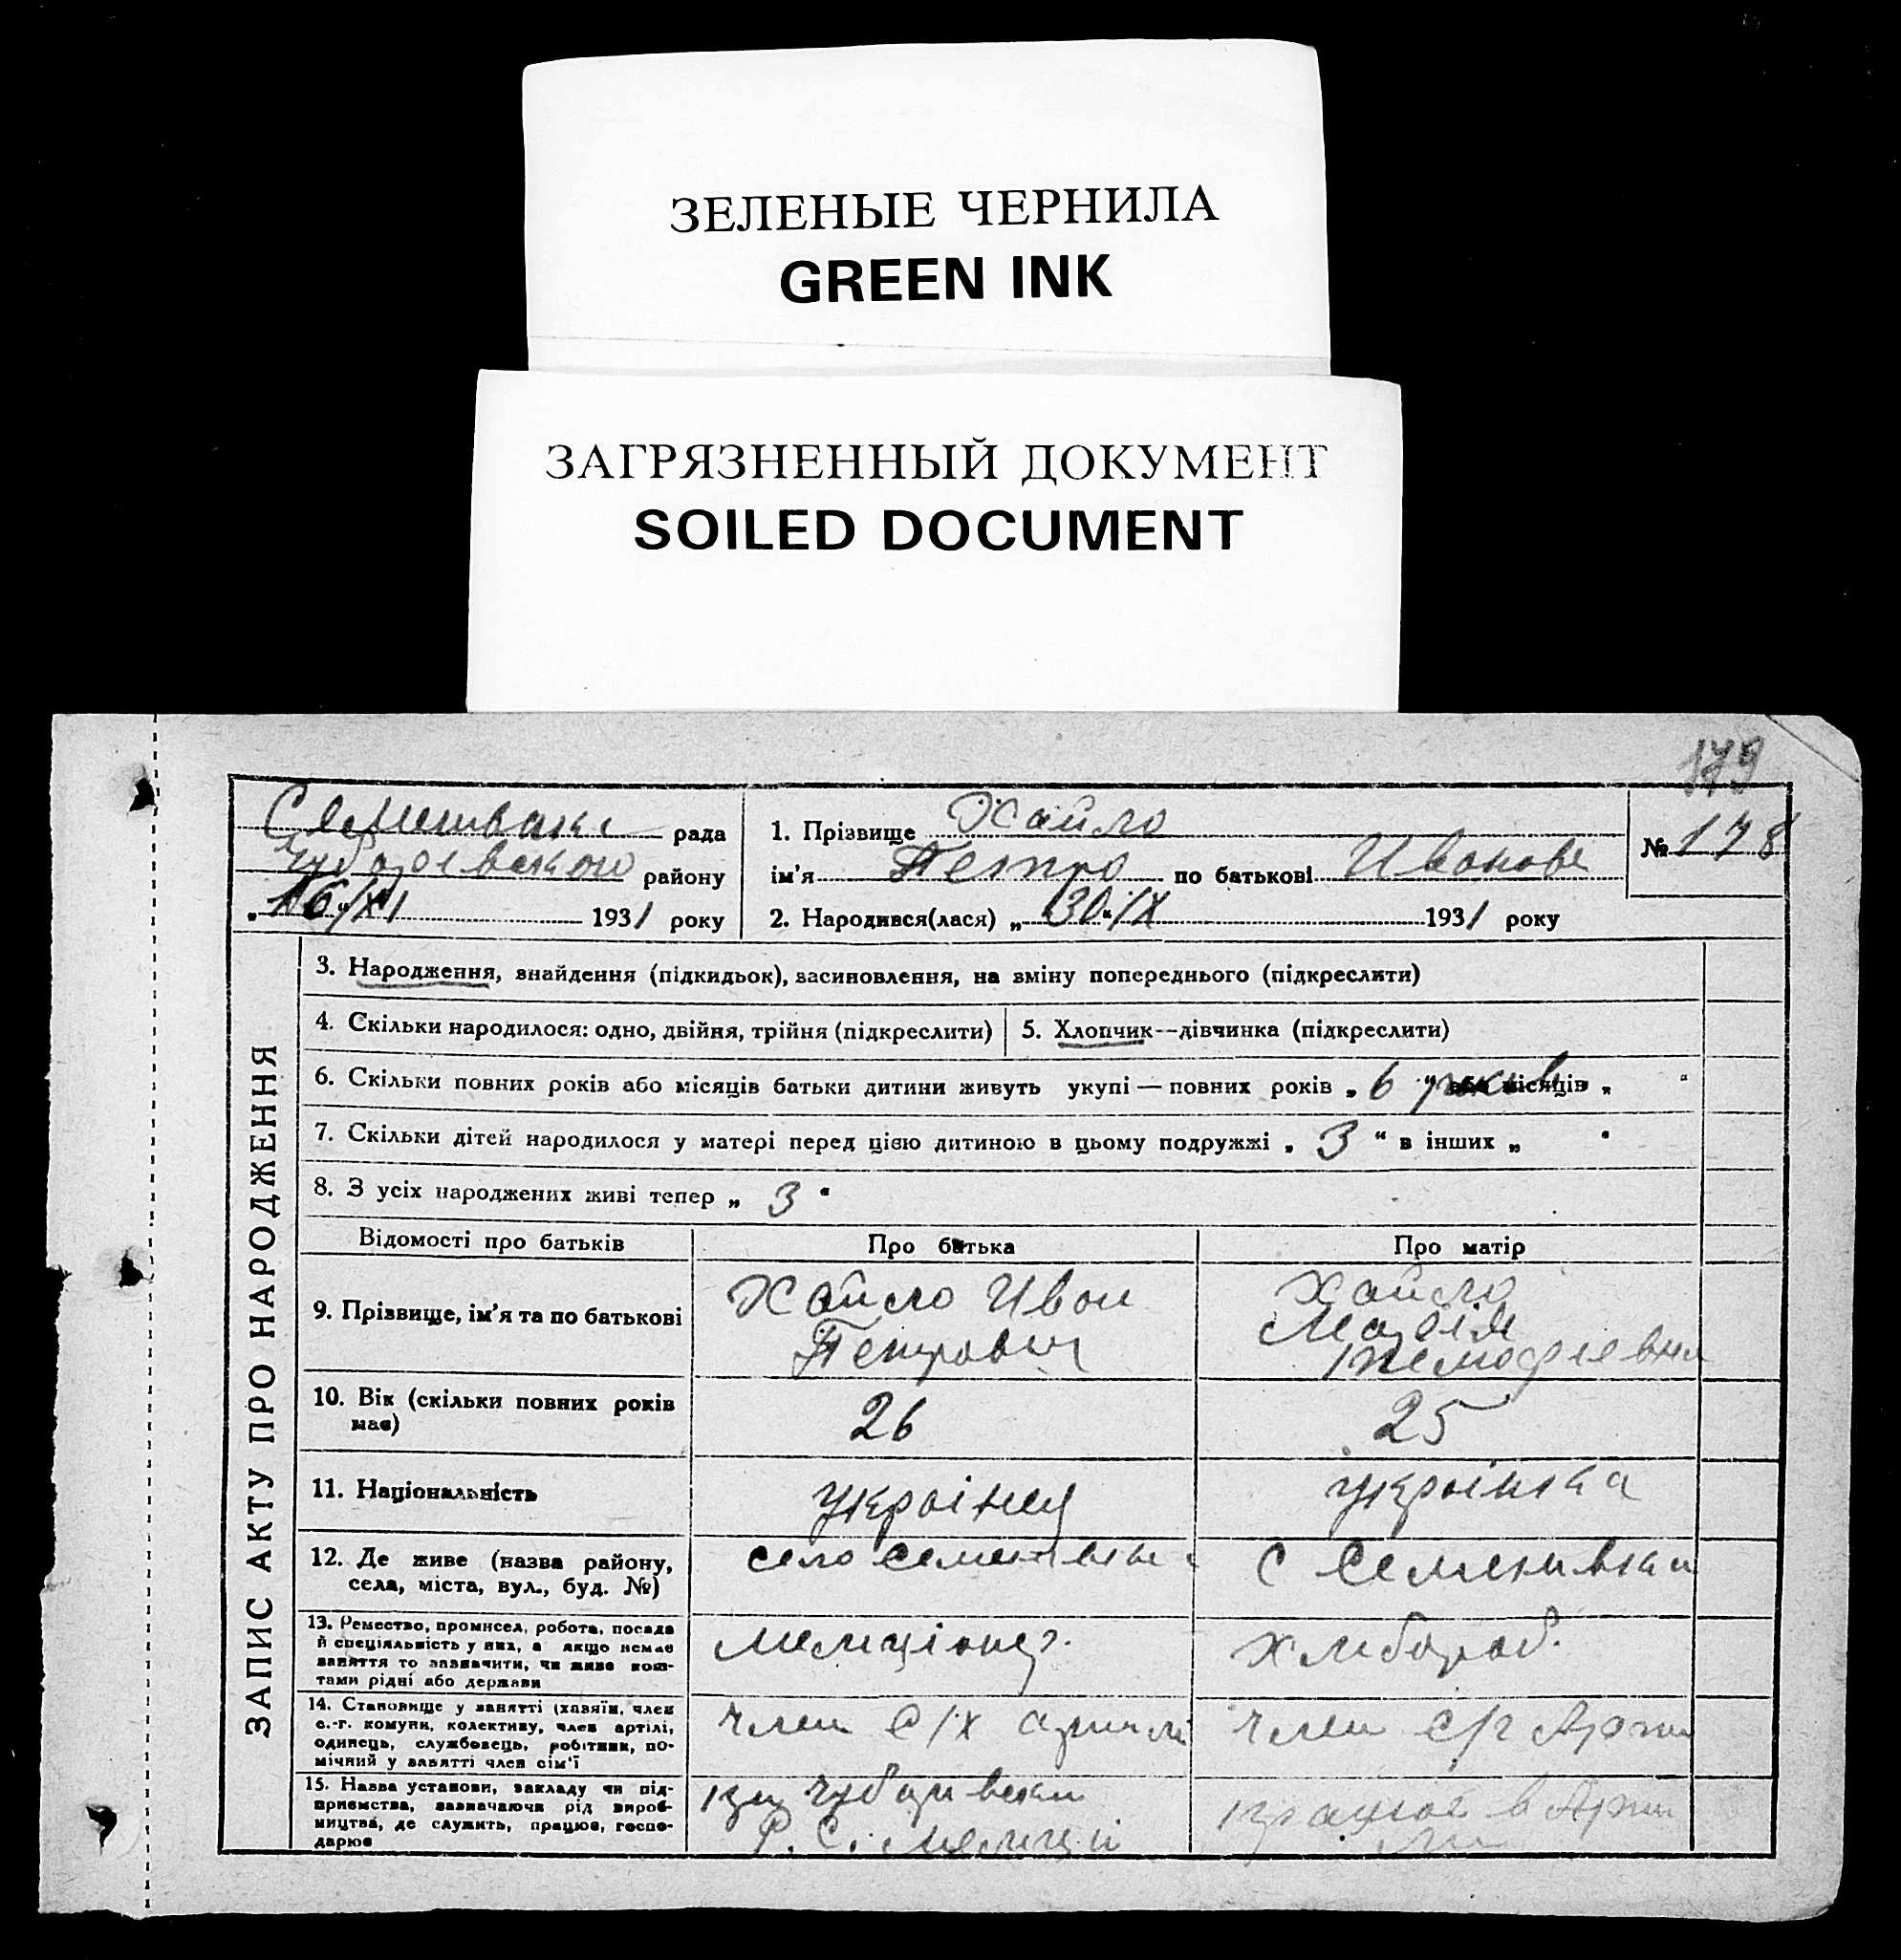 ЗЕЛЕНЫЕ ЧЕРНИЛА
GREEN INK
ЗАГРЯЗНЕННЫЙ ДОКУМЕНТ
SOILED DOCUMENT
179
рада
району
„16“/XI 1931 року
1. Прізвище Хайло
ім'я Петро по батькові Иванове
2. Народився(лася) „30“/X 1931 року
№ 178
ЗАПИС АКТУ ПРО НАРОДЖЕННЯ
3. Народження, знайдення (підкидьок), засиновлення, на зміну попереднього (підкреслити)
4. Скільки народилося: одно, двійня, трійня (підкреслити)
5. Хлопчик—дівчинка (підкреслити)
6. Скільки повних років або місяців батьки дитини живуть укупі — повних років „ 6 “ років або місяців „ “
7. Скільки дітей народилося у матері перед цією дитиною в цьому подружжі „ 3 “ в інших „ “
8. З усіх народжених живі тепер „ 3 “
Відомості про батьків
Про батька
Про матір
9. Прізвище, ім'я та по батькові
Хайло Иван
Петрович
Хайло
Марія
10. Вік (скільки повних років
має)
26
25
11. Національність
українец
українка
12. Де живе (назва району,
села, міста, вул., буд. №)
село Семенівки
С Семенивки
13. Ремество, промисел, робота, посада
й спеціяльність у них, а якщо немає
заняття то зазначити, чи живе кош-
тами рідні або держави
меліціонер.
хлибороб.
14. Становище у занятті (хазяїн, член
с.-г. комуни, колективу, член артілі,
одинець, службовець, робітник, по-
мічний у занятті член сім'ї
член с/х артилі
член с/г Арти
15. Назва установи, закладу чи під-
приємства, зазначаючи рід вироб-
ництва, де служить, працює, госпо-
дарює
при
Р. С. мелиції
працює в Арти
ли